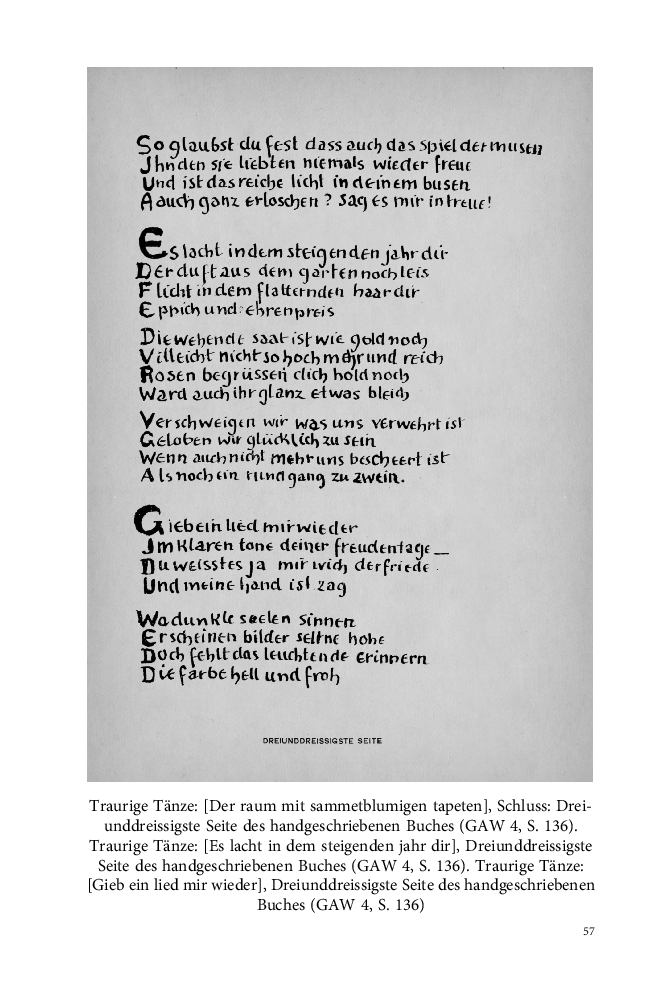 So glaubst du fest dass auch das spiel der musen
Ihn den sie liebten niemals wieder freue
Und ist das reiche licht in deinem busen
Aauch ganz erloschen? Sag es mir in treue!
Es lacht in dem steigenden jahr dir
Der duft aus dem garten noch leis
Flicht in dem flatternden haar dir
Eppich und ehrenpreis
Die wehende saat ist wie gold noch
Villeicht nicht so hoch mehr und reich
Rosen begrüssen dich hold noch
Ward auch ihr glanz etwas bleich
Verschweigen wir was uns verwehrt ist
Geloben wir glücklich zu sein
Wenn auch nicht mehr uns bescheert ist
Als noch ein rundgang zu zwein.
Gieb ein lied mir wieder
Im klaren tone deiner freudentage_
Du weisst es ja mir wich der friede
Und meine hand ist zag
Wo dunkle seelen sinnen
Erscheinen bilder seltne hohe
Doch fehlt das leuchtende erinnern
Die farbe hell und froh
DREIUNDDREISSIGSTE SEITE
Traurige Tänze: [Der raum mit sammetblumigen tapeten], Schluss: Drei-
unddreissigste Seite des handgeschriebenen Buches (GAW 4, S. 136).
Traurige Tänze: [Es lacht in dem steigenden jahr dir], Dreiunddreissigste
Seite des handgeschriebenen Buches (GAW 4, S. 136). Traurige Tänze:
[Gieb ein lied mir wieder], Dreiunddreissigste Seite des handgeschriebenen
Buches (GAW 4, S. 136)
57